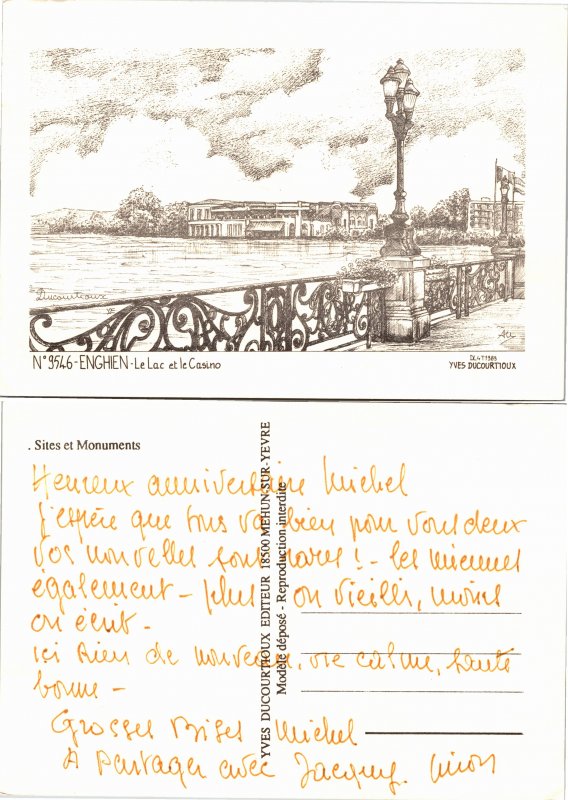 Ducourtioux
N° 9546 - ENGHIEN - Le Lac et le Casino
DL 4T 1989
YVES DUCOURTIOUX
. Sites et Monuments
Heureux anniversaire Michel
J'espère que tous va bien pour vous deux
vos nouvelles sont rares ! - les miennes
également - plus on vieilli, moins
on écrit -
ici rien de nouveau, vie calme, santé
bonne -
Grosses Bises Michel
A partager avec Jacquy.
YVES DUCOURTIOUX EDITEUR 18500 MEHUN-SUR-YEVRE
Modèle déposé - Reproduction interdite